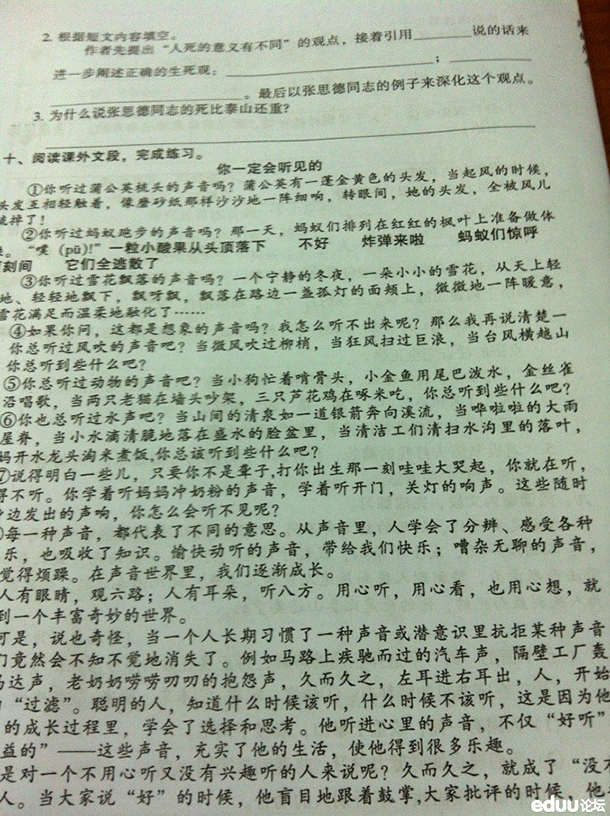 2. 根据短文内容填空。
作者先提出“人死的意义有不同”的观点，接着引用________说的话来
进一步阐述正确的生死观：________________；________
________________。最后以张思德同志的例子来深化这个观点。
3. 为什么说张思德同志的死比泰山还重？
十、阅读课外文段，完成练习。
你一定会听见的
①你听过蒲公英梳头的声音吗？蒲公英有一蓬金黄色的头发，当起风的时候，
头发互相轻触着，像磨砂纸那样沙沙地一阵细响，转眼间，她的头发，全被风儿
掉了！
②你听过蚂蚁跑步的声音吗？那一天，蚂蚁们排列在红红的枫叶上准备做体
。“噗（pū）！”一粒小酸果从头顶落下 不好 炸弹来啦 蚂蚁们惊呼
刻间 它们全逃散了
③你听过雪花飘落的声音吗？一个宁静的冬夜，一朵小小的雪花，从天上轻
地、轻轻地飘下，飘呀飘，飘落在路边一盏孤灯的面颊上，微微地一阵暖意，
雪花满足而温柔地融化了……
④如果你问，这都是想象的声音吗？我怎么听不出来呢？那么我再说清楚一
你总听过风吹的声音吧？当微风吹过柳梢，当狂风扫过巨浪，当台风横越山
你总听到些什么吧？
⑤你总听过动物的声音吧？当小狗忙着啃骨头，小金鱼用尾巴泼水，金丝雀
沿唱歌，当两只老猫在墙头吵架，三只芦花鸡在啄米吃，你总听到些什么吧？
⑥你也总听过水声吧？当山间的清泉如一道银箭奔向溪流，当哗啦啦的大雨
屋脊，当小水滴清脆地落在盛水的脸盆里，当清洁工们清扫水沟里的落叶，
妈开水龙头淘米煮饭，你总该听到些什么吧？
⑦说得明白一些儿，只要你不是聋子，打你出生那一刻哇哇大哭起，你就在听，
得不听。你学着听妈妈冲奶粉的声音，学着听开门，关灯的响声。这些随时
边发出的声响，你怎么会听不见呢？
每一种声音，都代表了不同的意思。从声音里，人学会了分辨、感受各种
乐，也吸收了知识。愉快动听的声音，带给我们快乐；嘈杂无聊的声音，
觉得烦躁。在声音世界里，我们逐渐成长。
人有眼睛，观六路；人有耳朵，听八方。用心听，用心看，也用心想，就
到一个丰富奇妙的世界。
可是，说也奇怪，当一个人长期习惯了一种声音或潜意识里抗拒某种声音
们竟然会不知不觉地消失了。例如马路上疾驰而过的汽车声，隔壁工厂轰
马达声，老奶奶唠唠叨叨的抱怨声，久而久之，左耳进右耳出，人，开始
“过滤”。聪明的人，知道什么时候该听，什么时候不该听，这是因为他
的成长过程里，学会了选择和思考。他听进心里的声音，不仅“好听”
益的”——这些声音，充实了他的生活，使他得到很多乐趣。
是对一个不用心听又没有兴趣听的人来说呢？久而久之，就成了“没
人。当大家说“好”的时候，他盲目地跟着鼓掌，大家批评的时候，他
eduu论坛